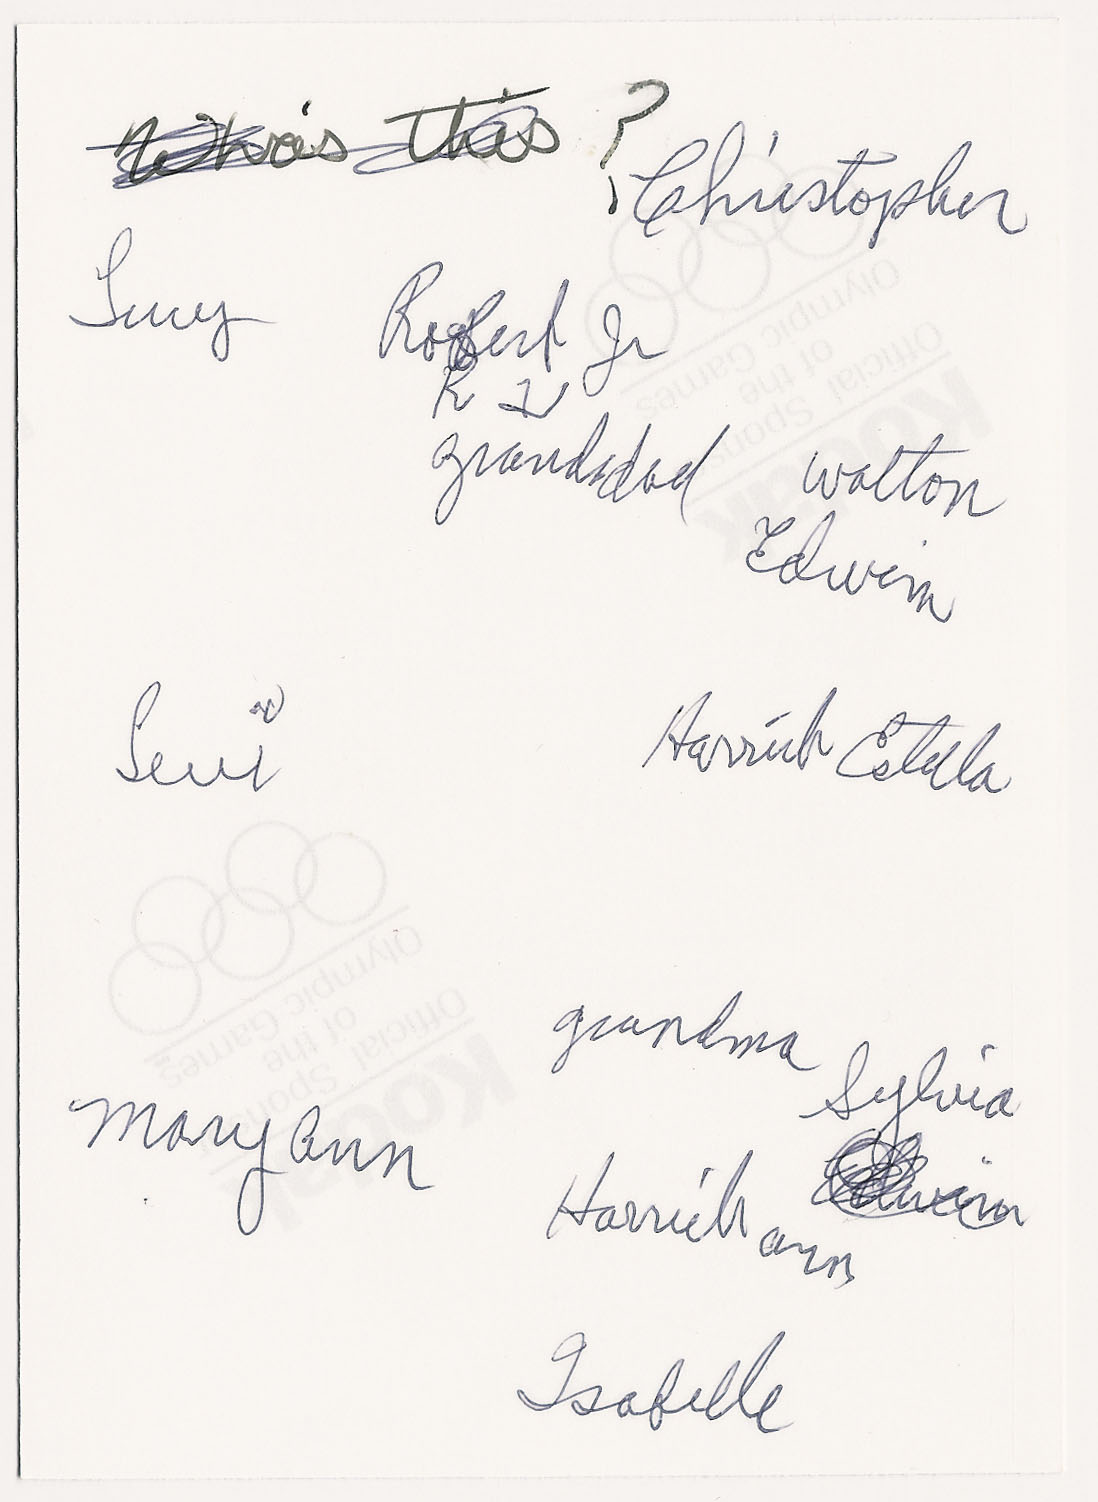 Who is this ?
Christopher
Lucy
Robert Jr
R IV
granddad
Walton
Edwin
Levi
Harriet Estella
grandma
Sylvia
Mary Ann
Edwin
Harriet Ann
Isabelle
Official Sponsor
of the
Olympic Games
Kodak
Official Sponsor
of the
Olympic Games
Kodak